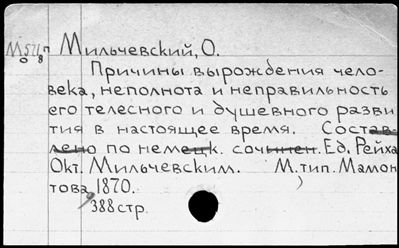 Мильчевский, О.
Причины вырождения чело-
века, неполнота и неправильность
его телесного и душевного разви
тия в настоящее время. Состав-
лено по немецк. сочинен. Ед. Рейха
Окт. Мильчевским. М. тип. Мамон
това, 1870.
388 стр.